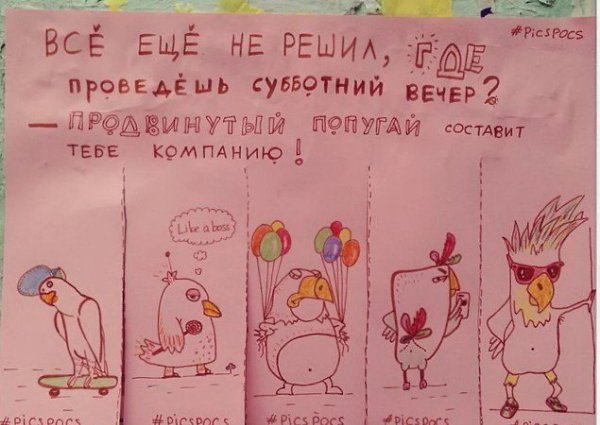 #PicsPocs
ВСЁ ЕЩЁ НЕ РЕШИЛ, ГДЕ
ПРОВЕДЁШЬ СУББОТНИЙ ВЕЧЕР?
— ПРОДВИНУТЫЙ ПОПУГАЙ СОСТАВИТ
ТЕБЕ КОМПАНИЮ!
Like a boss
#PicsPocs #PicsPocs #PicsPocs #PicsPocs #PicsPocs